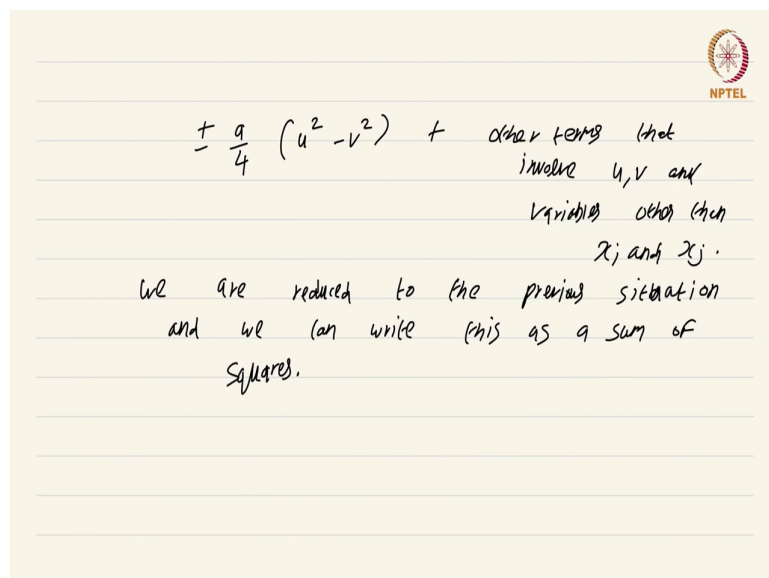 NPTEL
± a/4 (u² - v²) + other terms that
involve u, v and
variables other than
xi and xj.
we are reduced to the previous situation
and we can write this as a sum of
squares.